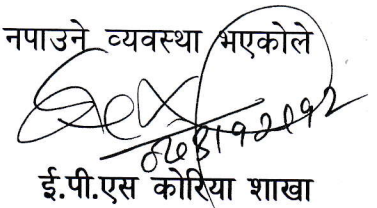 नपाउने व्यवस्था भएकोले
ई.पी.एस कोरिया शाखा